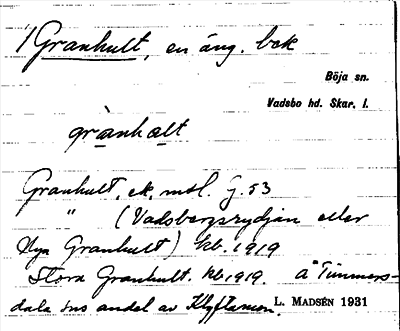 1/ Granhult, en äng. bek
Böja sn.
Vadsbo hd. Skar. l.
grànhalt
Granhult, ek. mtl. J. 53
" (Vadsbergsrydjan eller
Nya Granhult) kb. 1919
Stora Granhult. kb 1919. å Timmers-
dala sns andel av Klyftamon.
L. MADSÉN 1931